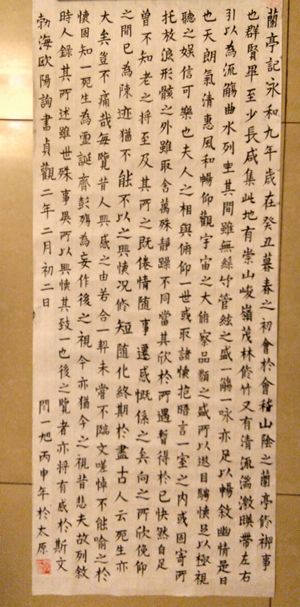 蘭亭記永和九年歲在癸丑暮春之初會於會稽山陰之蘭亭修禊事
也群賢畢至少長咸集此地有崇山峻嶺茂林修竹又有清流湍激映帶左右
引以為流觴曲水列坐其間雖無絲竹管絃之盛一觴一詠亦足以暢敘幽情是日
也天朗氣清惠風和暢仰觀宇宙之大俯察品類之盛所以遊目騁懷足以極視
聽之娛信可樂也夫人之相與俯仰一世或取諸懷抱晤言一室之內或因寄所
托放浪形骸之外雖取舍萬殊靜躁不同當其欣於所遇暫得於己快然自足
曾不知老之將至及其所之既倦情隨事遷感慨係之矣向之所欣俛仰
之間已為陳迹猶不能不以之興懷況修短隨化終期於盡古人云死生亦
大矣豈不痛哉每覽昔人興感之由若合一契未嘗不臨文嗟悼不能喻之於
懷固知一死生為虛誕齊彭殤為妄作後之視今亦猶今之視昔悲夫故列敘
時人錄其所述雖世殊事異所以興懷其致一也後之覽者亦將有感於斯文
渤海歐陽詢書貞觀二年二月初二日 閆一旭丙申年於太原